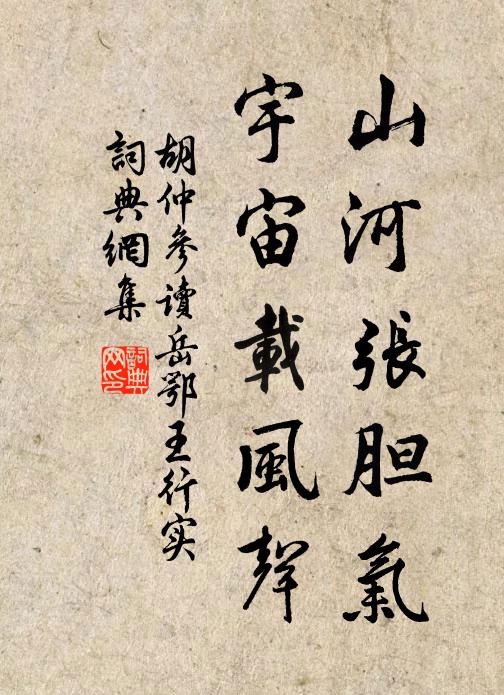 山河張胆氣
宇宙載風聲
胡仲參讀岳鄂王行实
詞典網集
詞典网印